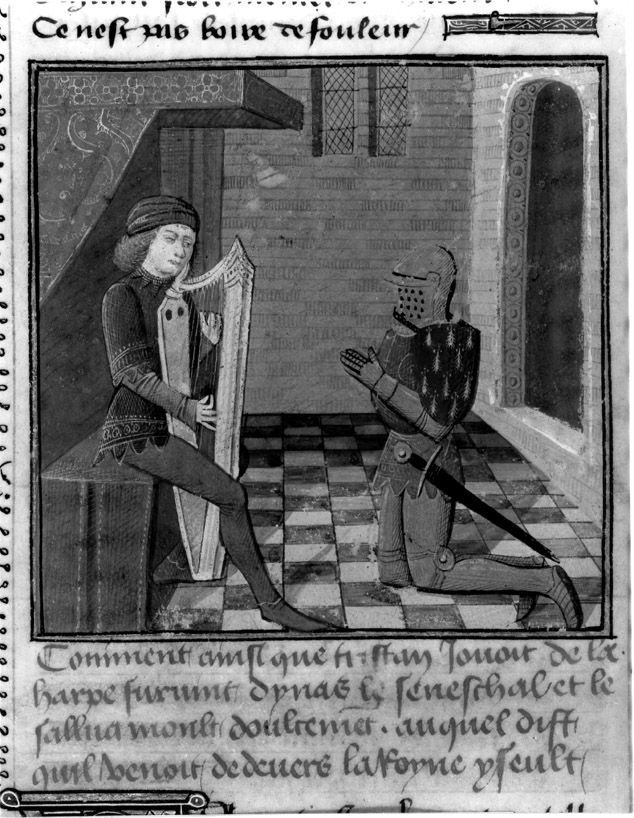 Ce nest pas boire de fouleur
Comment ainsi que tristan Jouoit de la
harpe suruint dynas le seneschal et le
sallua moult doulcemēt. auquel dist
quil venoit dedeuers la Royne yseult